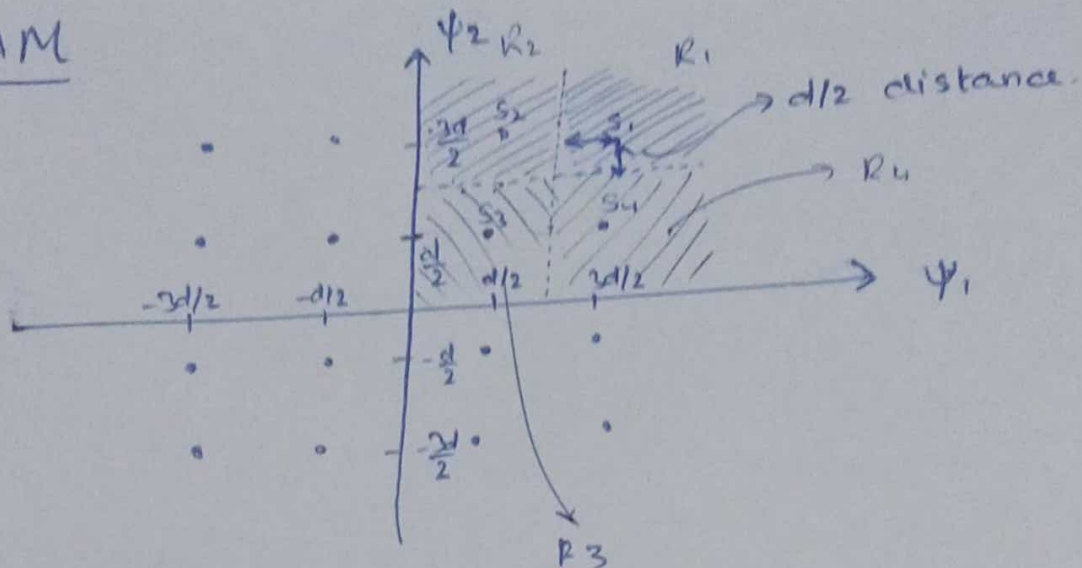 AM
ψ2 R2 R1
d/2 distance.
3d/2 S2 S1
R4
S3 S4
d/2 d/2 3d/2
-3d/2 -d/2 ψ1
-d/2
-3d/2
R3